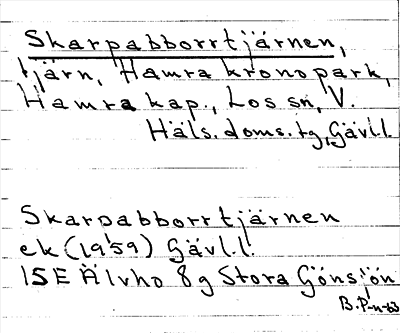 Skarpabborrtjärnen,
tjärn, Hamra kronopark,
Hamra kap., Los sn, V.
Häls. doms. tg, Gävl.l.
Skarpabborrtjärnen
ek (1959) Gävl.l.
15E Älvho 8g Stora Göns:ön
B.P-n-63